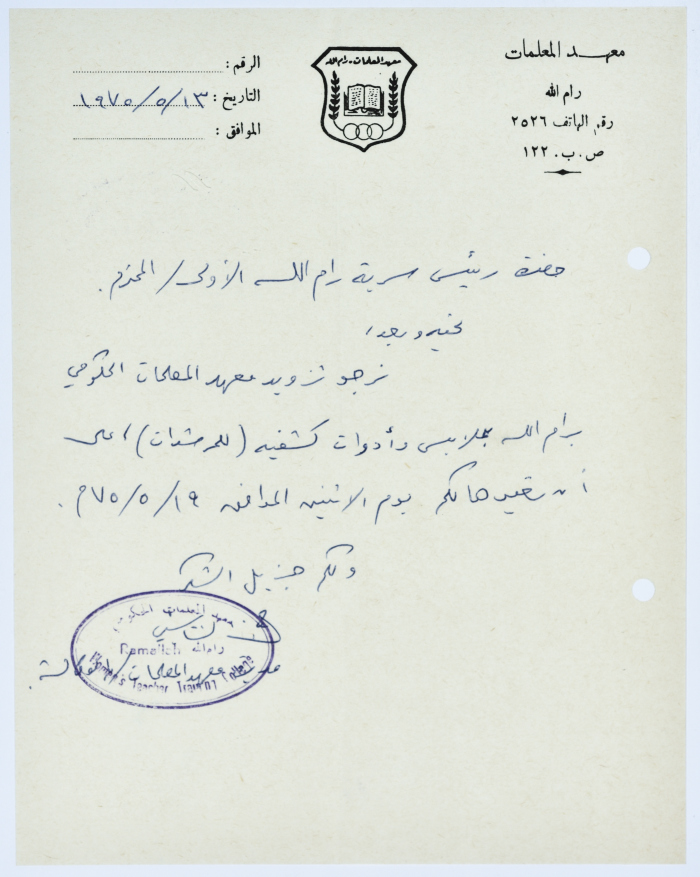 معهد المعلمات
رام الله
رقم الهاتف ٢٥٢٦
ص.ب. ١٢٢
معهد المعلمات - رام الله
الرقم :
التاريخ : ١٩٧٥/٥/١٣
الموافق :
حضرة رئيس سرية رام الله الأولى / المحترم .
تحية وبعد ،
نرجو تزويد معهد المعلمات الحكومي
برام الله بملابس وأدوات كشفيه (للمرشدات) ، على
أن نعيدها لكم يوم الاثنين الموافق ٧٥/٥/١٩م .
ولكم جزيل الشكر
معهد المعلمات الحكومي
رام الله Ramallah
Women's Teacher Training
معهد المعلمات / بالوكالة .